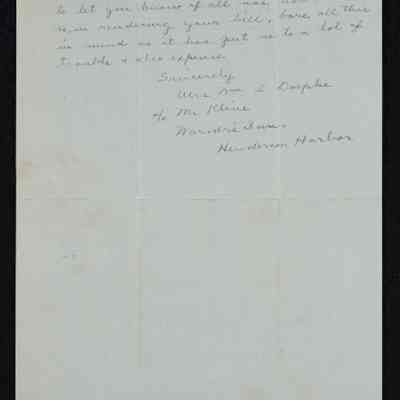 to let you know of all
in rendering your bill, bare all this
in mind as it has put us to a lot of
trouble & also expense.
Sincerely
Mrs Wm L
c/o Mr Kline
Henderson Harbor